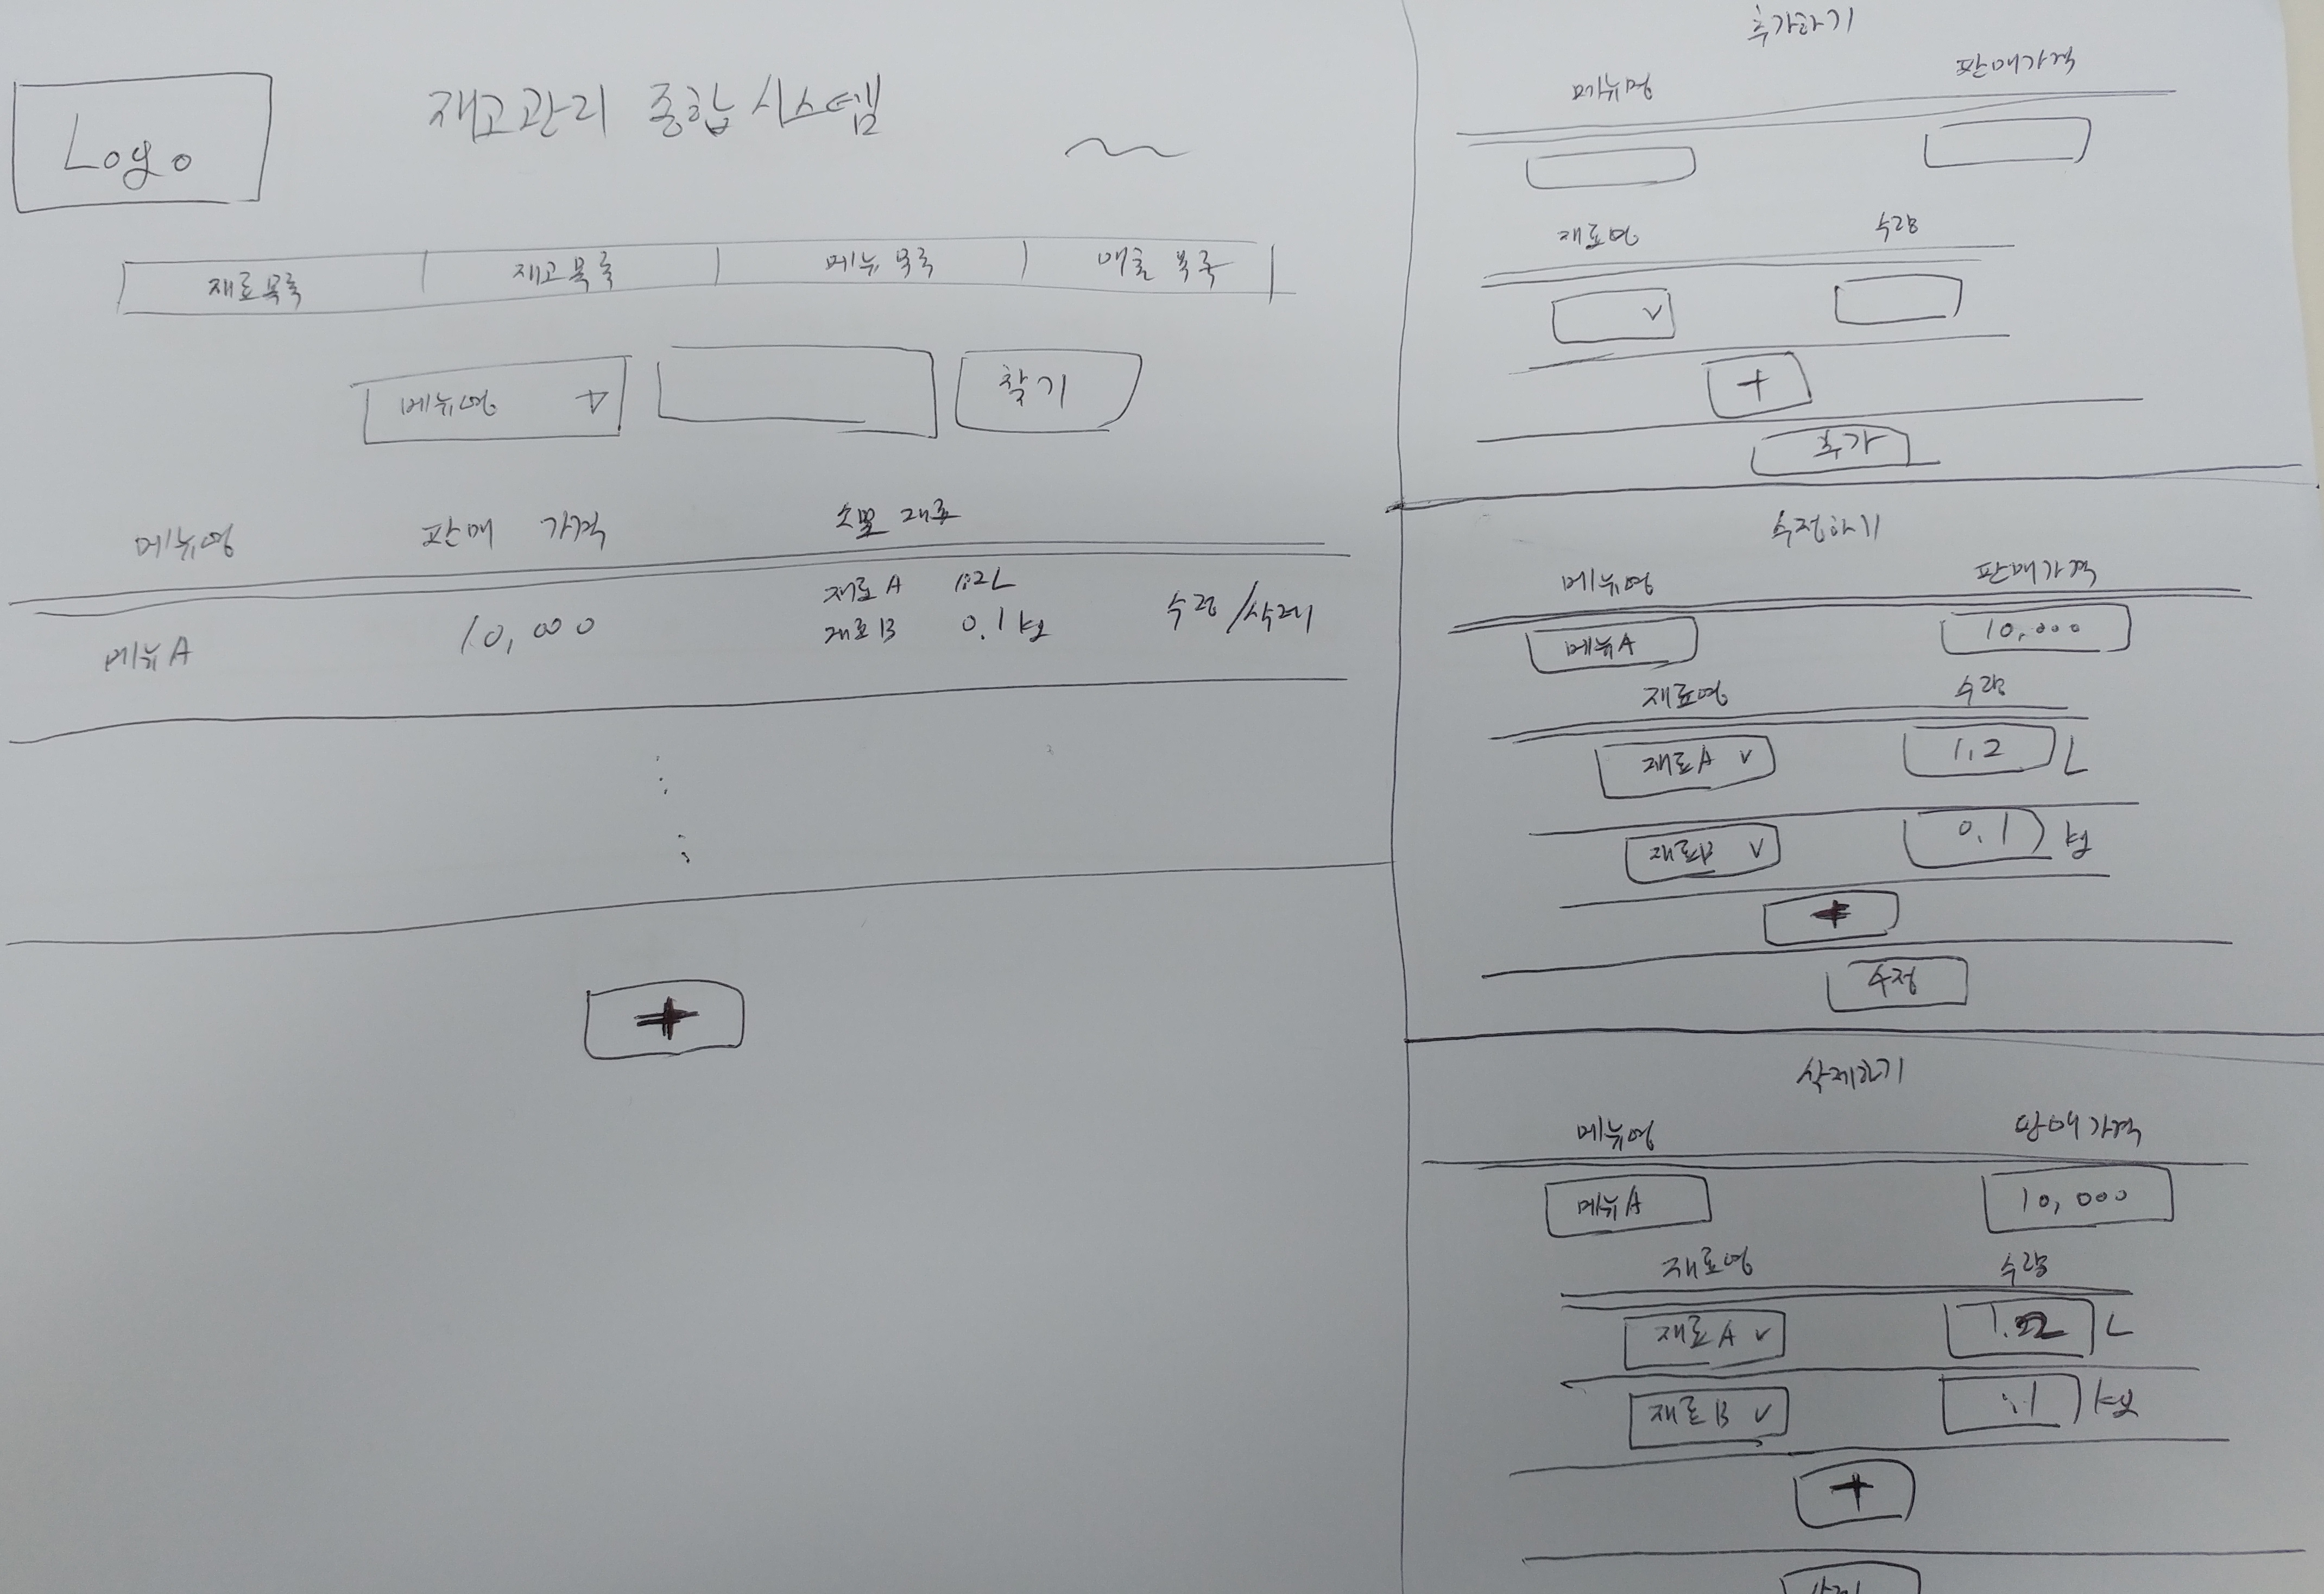 Logo
재고관리 종합시스템
재료목록 재고목록 메뉴 목록 매출 목록
메뉴명 찾기
메뉴명 판매 가격 소모 재료
메뉴A 10,000 재료A 1.2L 수정/삭제
재료B 0.1kg
+
추가하기
메뉴명 판매가격
재료명 수량
+
추가
수정하기
메뉴명 판매가격
메뉴A 10,000
재료명 수량
재료A 1.2 L
재료B 0.1 kg
+
수정
삭제하기
메뉴명 판매가격
메뉴A 10,000
재료명 수량
재료A 1.2 L
재료B kg
+